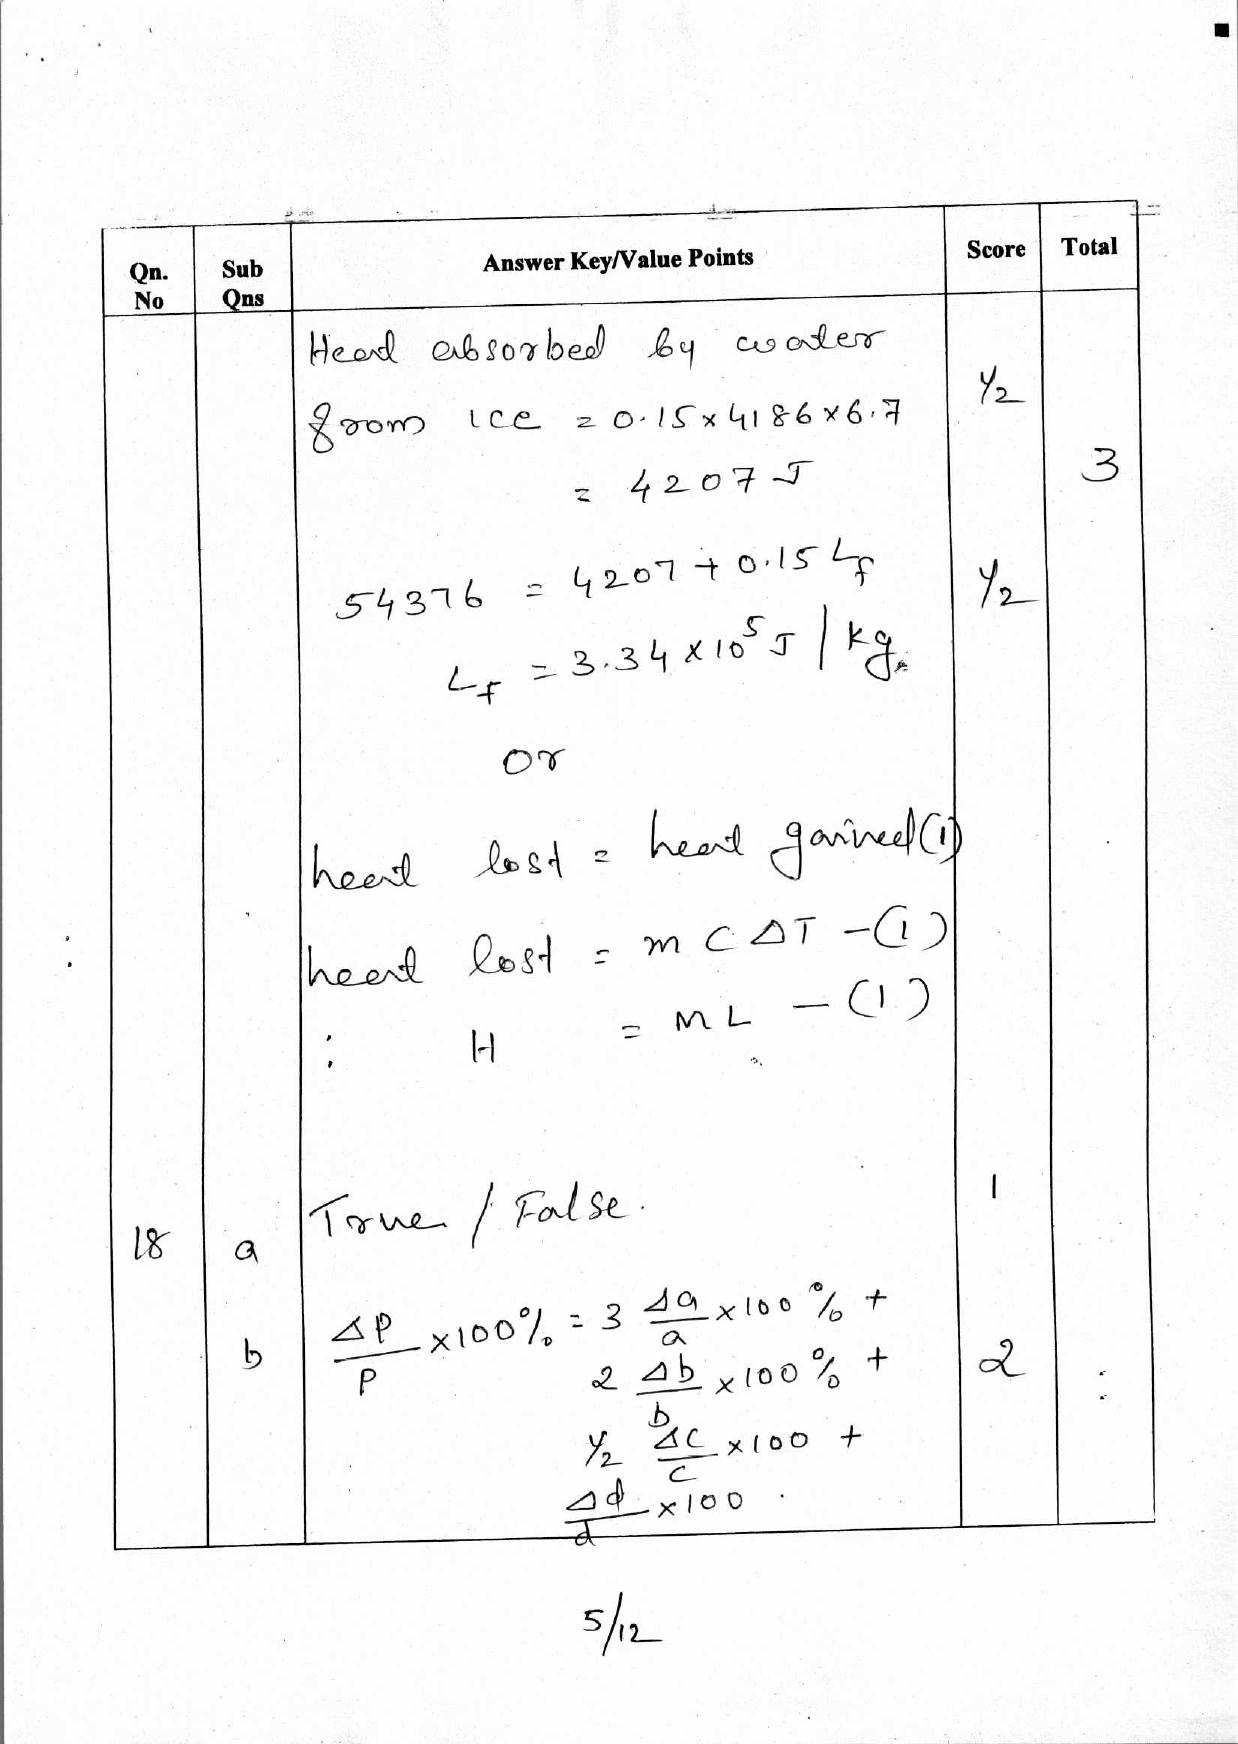 Qn. No | Sub Qns | Answer Key/Value Points | Score | Total
Heat absorbed by water
from ice = 0.15 x 4186 x 6.7 | 1/2
= 4207 J | 3
54376 = 4207 + 0.15 Lf | 1/2
Lf = 3.34 x 10^5 J / kg.
or
heat lost = heat gained (1)
heat lost = m C ΔT - (1)
: H = mL - (1)
18 | a | True / False. | 1
b | ΔP/P x100% = 3 Δa/a x100 % + | 2
2 Δb/b x100 % +
1/2 Δc/c x100 +
Δd/d x100 .
5/12